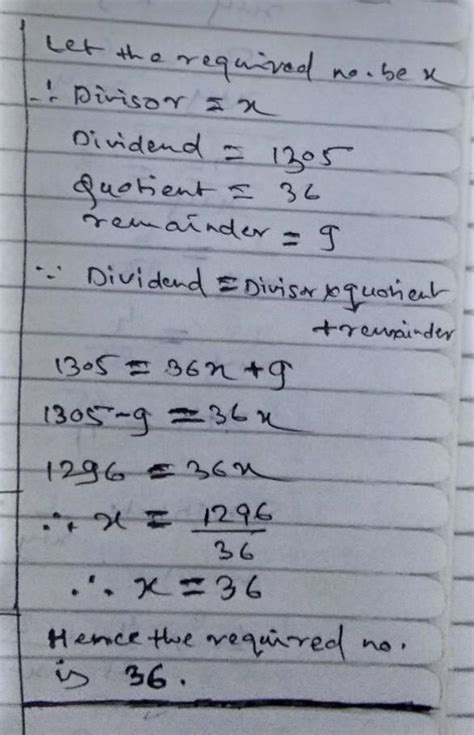 Let the required no. be x
∴ Divisor = x
Dividend = 1305
Quotient = 36
remainder = 9
∵ Dividend = Divisor × quotient
+ remainder
1305 = 36x + 9
1305 - 9 = 36x
1296 = 36x
∴ x = 1296/36
∴ x = 36
Hence the required no.
is 36.